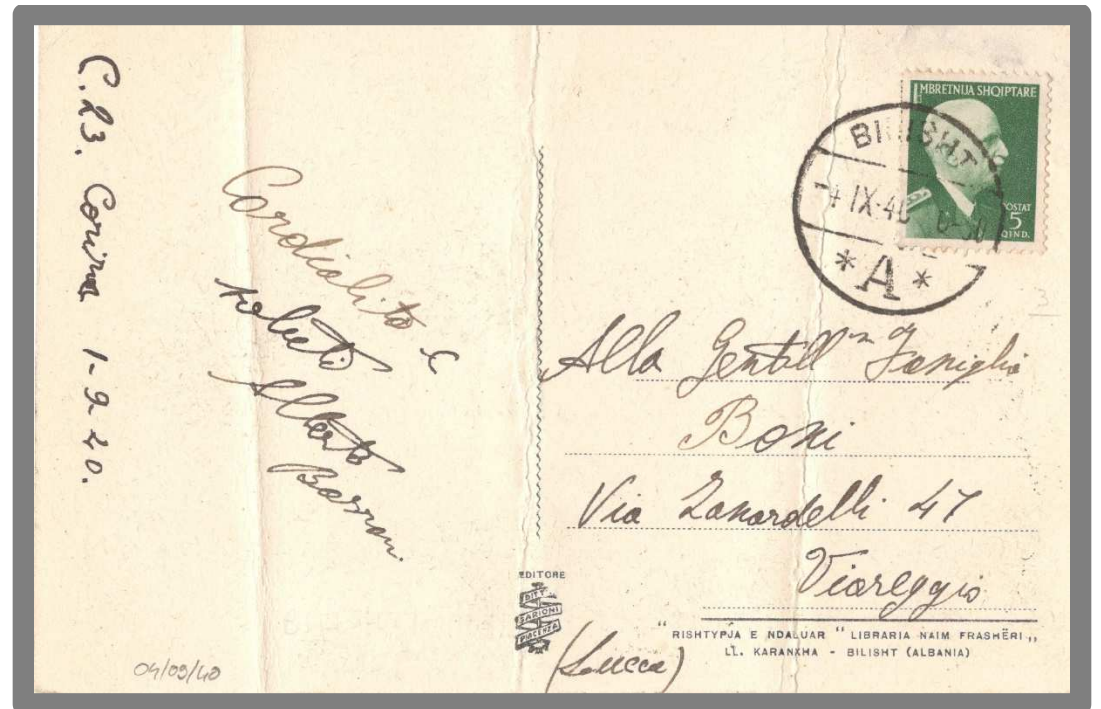 C. 23.        1-9-40.
Cordialità e
saluti
Alberto
MBRETNIJA SHQIPTARE
POSTAT
5
QIND.
BILISHT
-4 IX-40
* A *
Alla Gentill^ma Famiglia
Boni
Via Zanardelli 47
Viareggio
(Lucca)
EDITORE
DITT
SARIONI
PIACENZA
"RISHTYPJA E NDALUAR " LIBRARIA NAIM FRASHËRI „
LL. KARANXHA - BILISHT (ALBANIA)
04/09/40